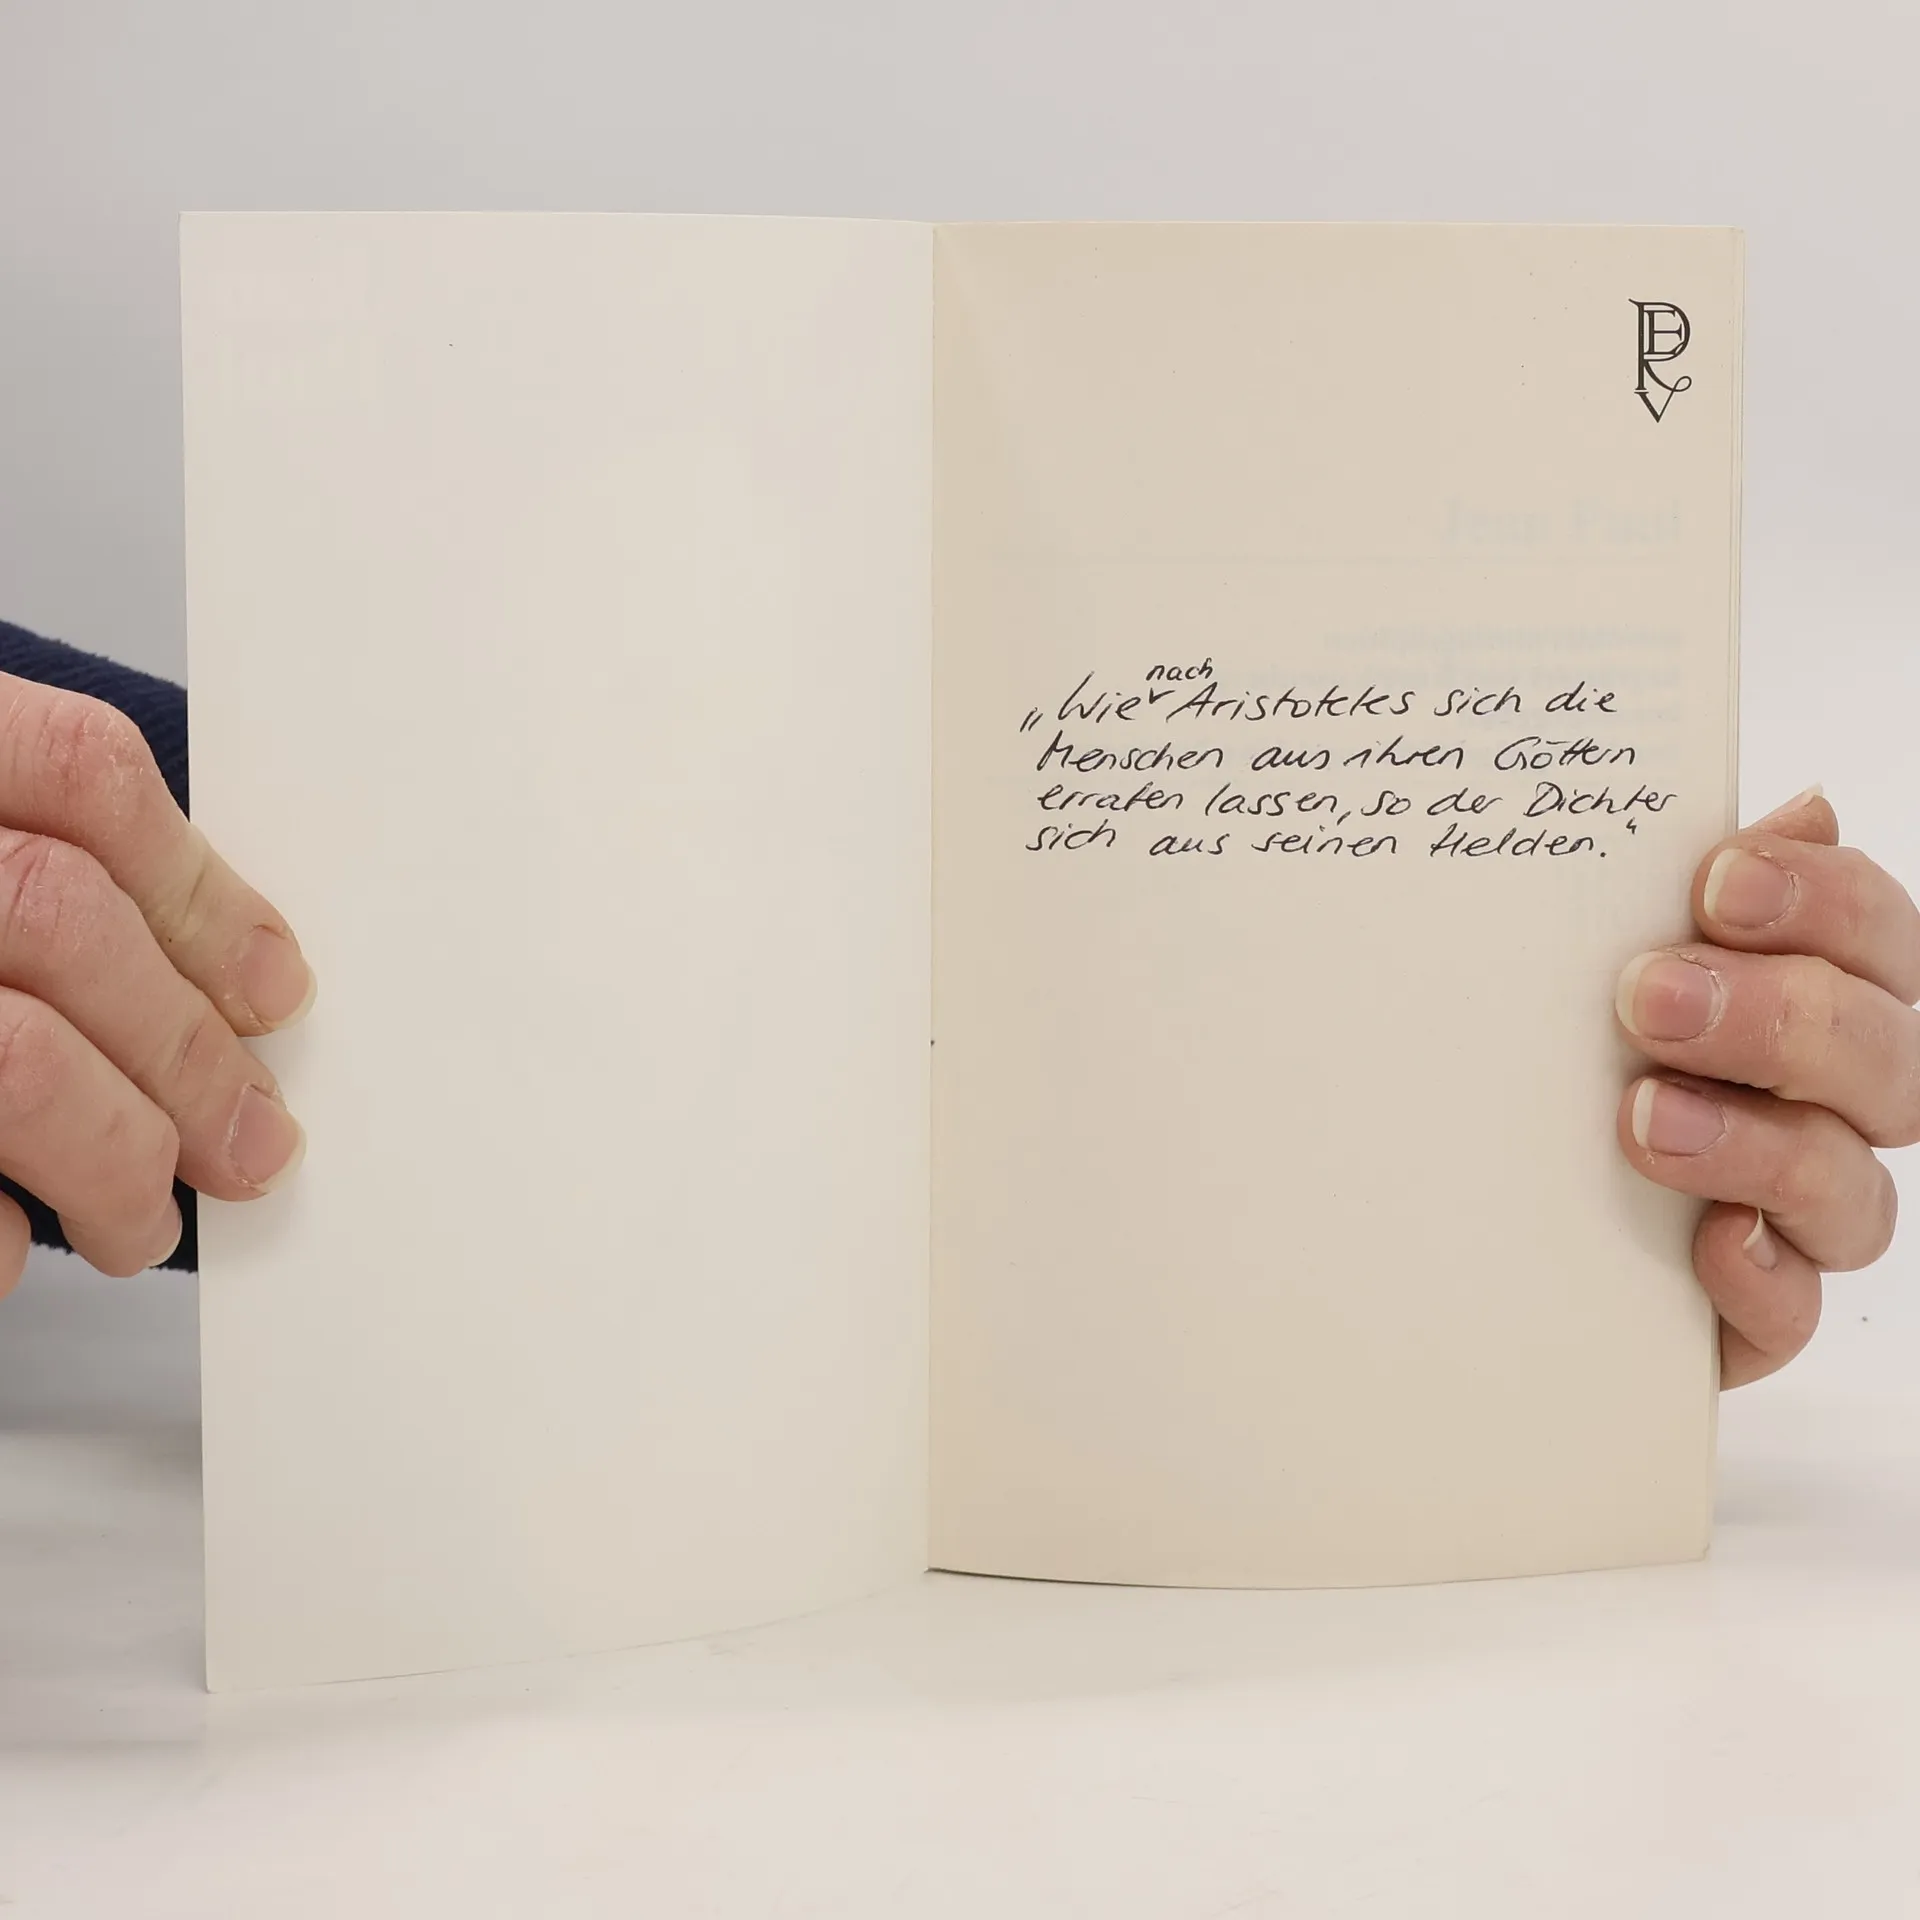 PERV
nach
„Wie Aristoteles sich die
Menschen aus ihren Göttern
erraten lassen, so der Dichter
sich aus seinen Helden.“